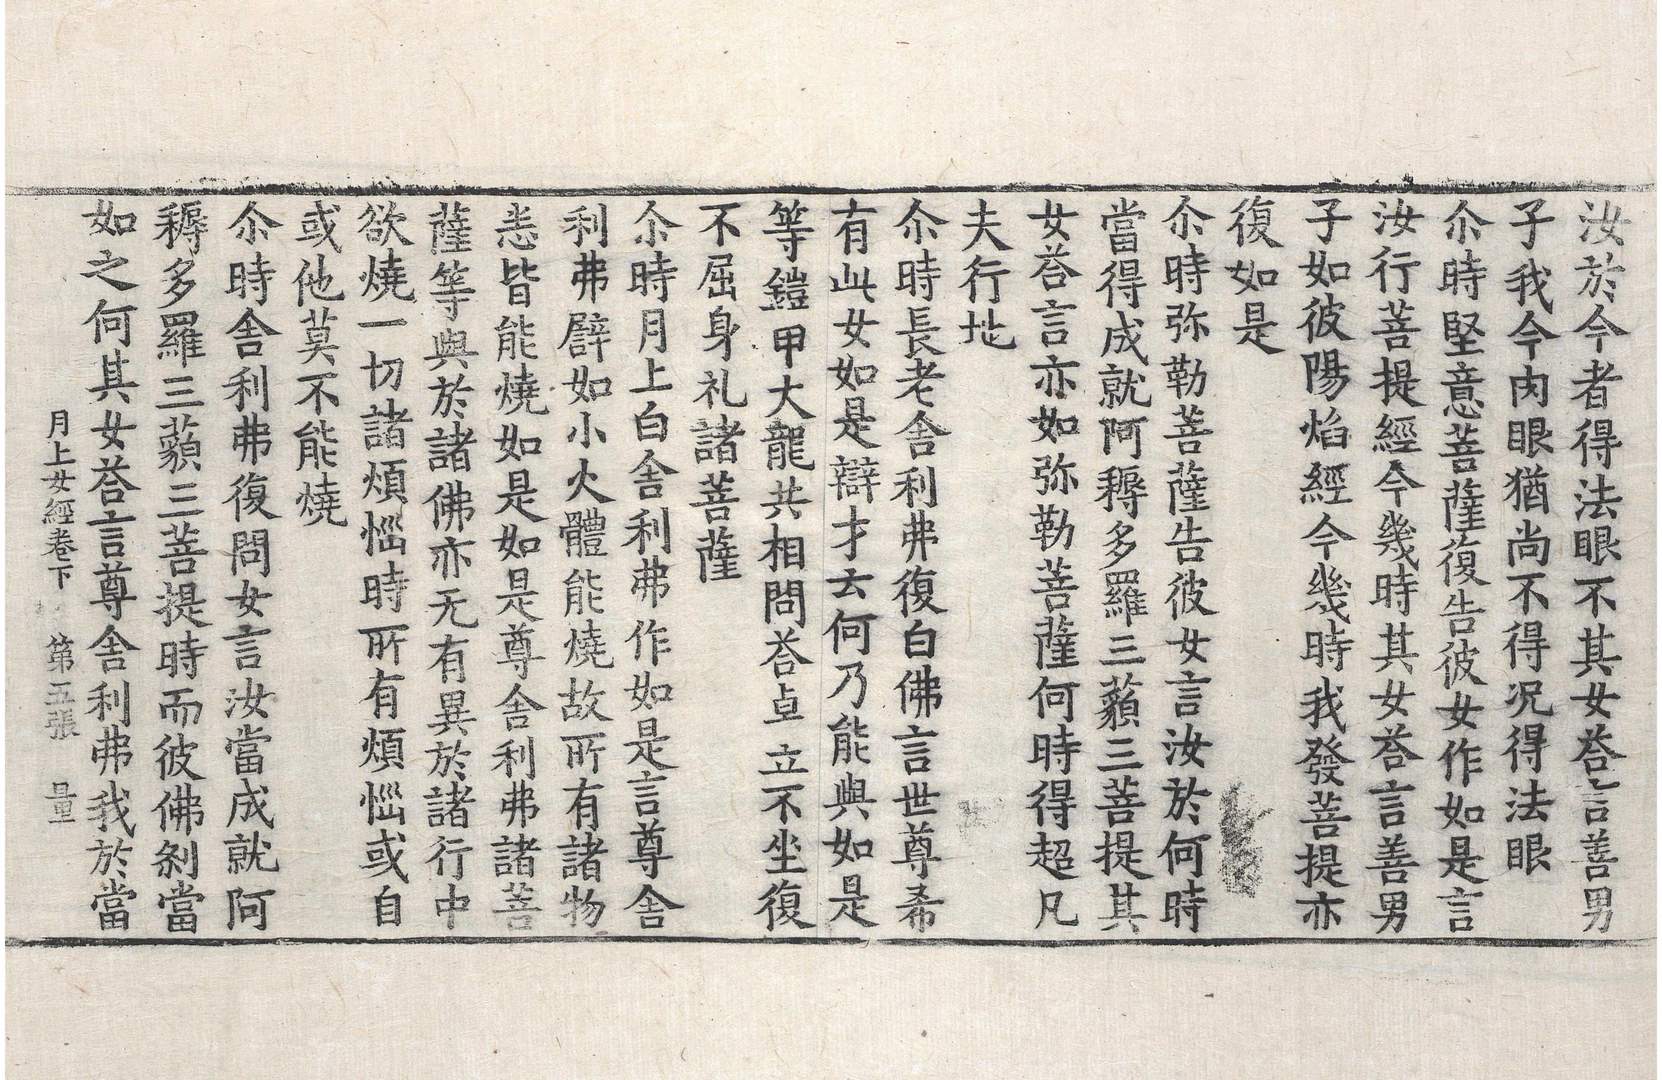 汝於今者得法眼不其女荅言善男
子我今肉眼猶尚不得况得法眼
尒時堅意菩薩復告彼女作如是言
汝行菩提經今幾時其女荅言善男
子如彼陽焰經今幾時我發菩提亦
復如是
尒時弥勒菩薩告彼女言汝於何時
當得成就阿耨多羅三藐三菩提其
女荅言亦如弥勒菩薩何時得超凡
夫行地
尒時長老舎利弗復白佛言世尊希
有此女如是辯才云何乃能與如是
等鎧甲大龍共相問荅直立不坐復
不屈身礼諸菩薩
尒時月上白舎利弗作如是言尊舎
利弗譬如小火體能燒故所有諸物
悉皆能燒如是如是尊舎利弗諸菩
薩等與於諸佛亦无有異於諸行中
欲燒一切諸煩惱時所有煩惱或自
或他莫不能燒
尒時舎利弗復問女言汝當成就阿
耨多羅三藐三菩提時而彼佛刹當
如之何其女荅言尊舎利弗我於當
月上女經卷下 第五張 量